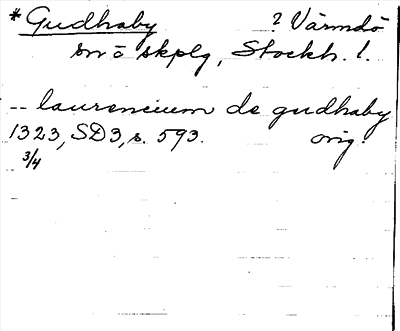 *Gudhaby ? Värmdö
sn ö skplg, Stockh. l.
-- laurencium de gudhaby
1323, SD3, s. 593. orig.
3/4